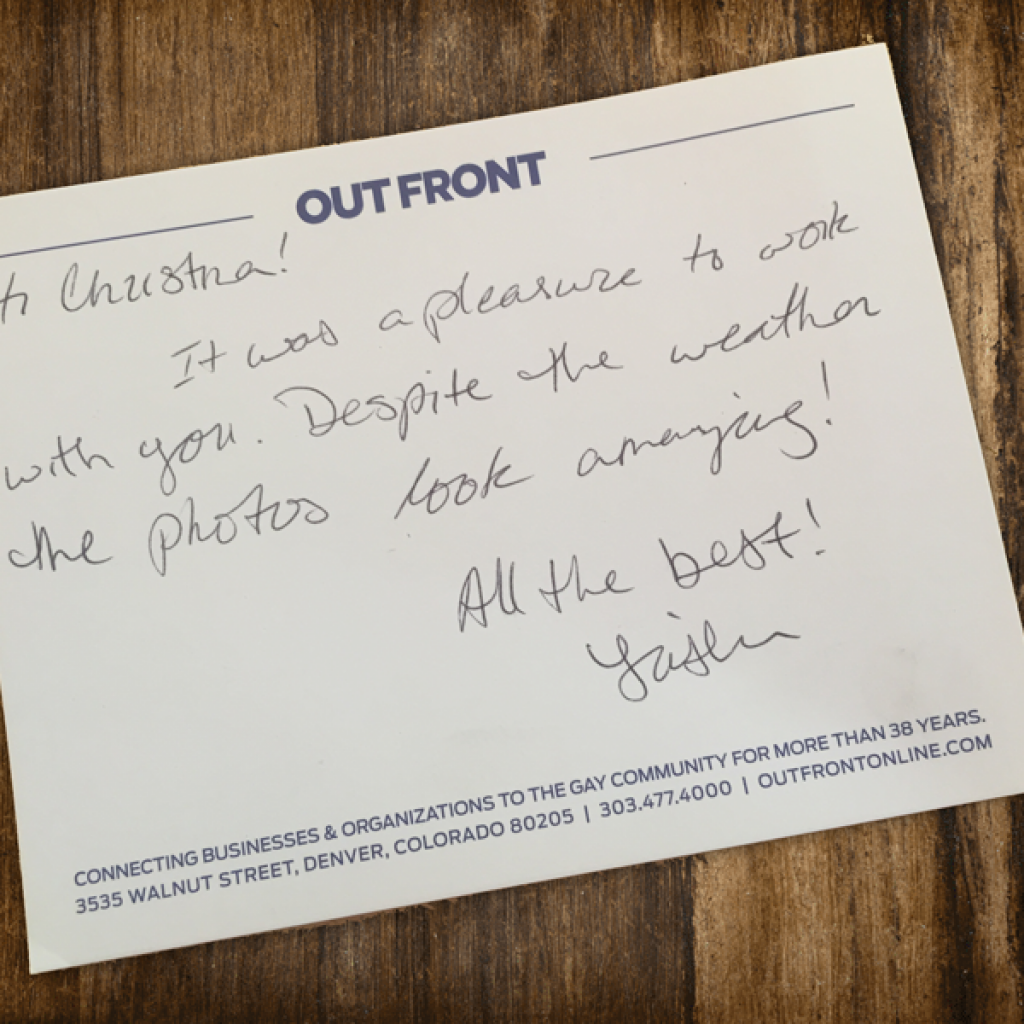 OUT FRONT
Hi Christina!
It was a pleasure to work
with you. Despite the weather
the photos look amazing!
All the best!
CONNECTING BUSINESSES & ORGANIZATIONS TO THE GAY COMMUNITY FOR MORE THAN 38 YEARS.
3535 WALNUT STREET, DENVER, COLORADO 80205 | 303.477.4000 | OUTFRONTONLINE.COM